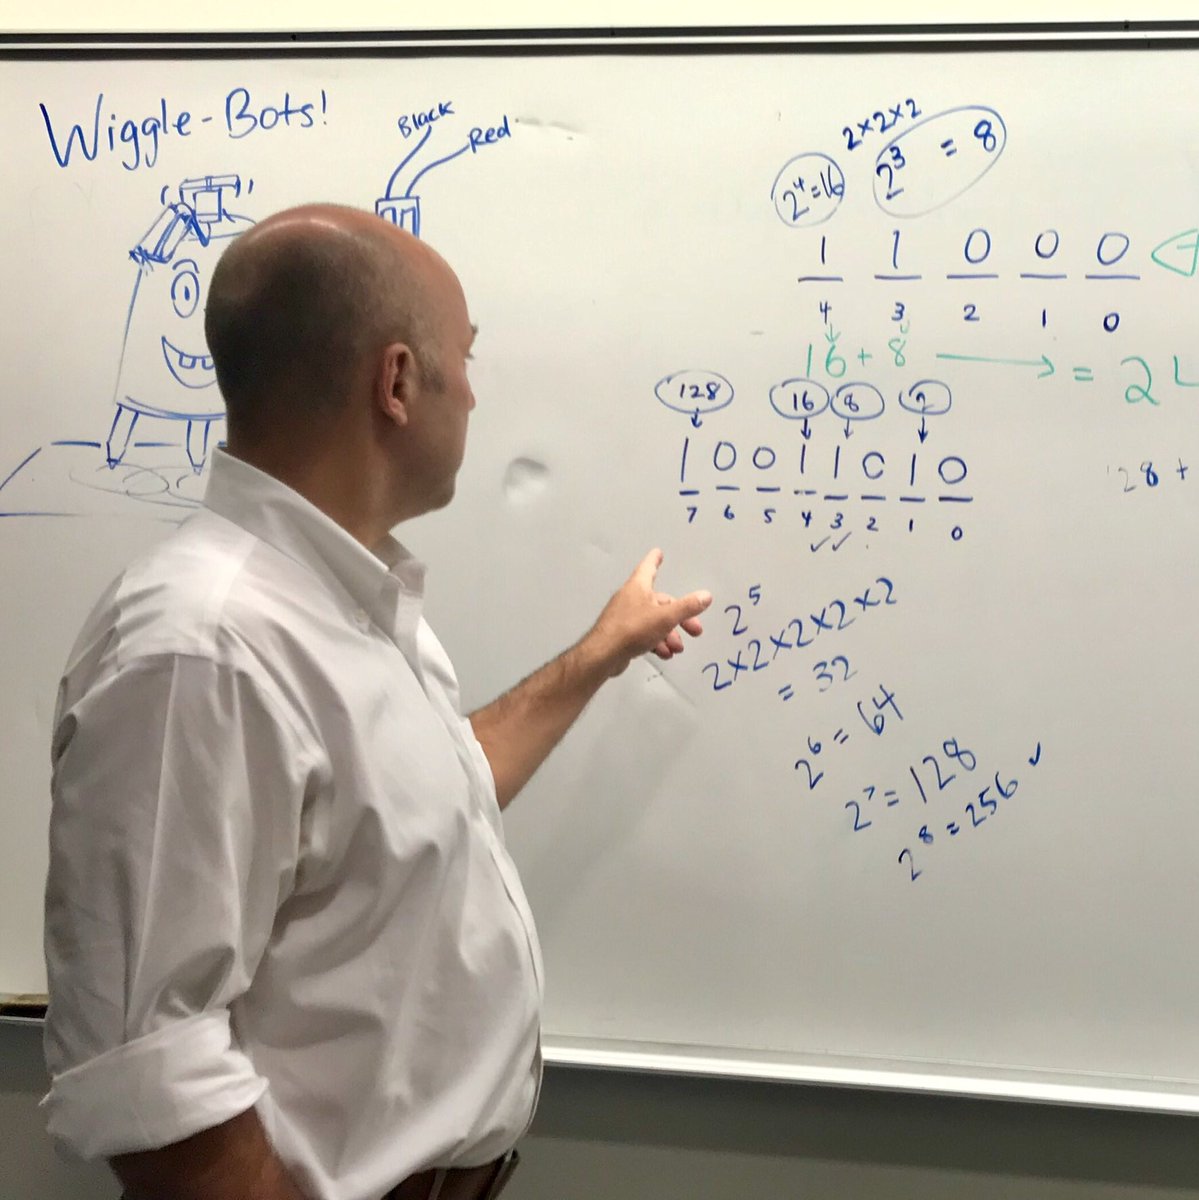 Wiggle-Bots!
Black
Red
2×2×2
2⁴=16
2³ = 8
1 1 0 0 0
4 3 2 1 0
16 + 8 → = 24
128 16 8 2
1 0 0 1 1 0 1 0
7 6 5 4 3 2 1 0
28 +
2⁵
2×2×2×2×2
= 32
2⁶ = 64
2⁷ = 128
2⁸ = 256 ✓